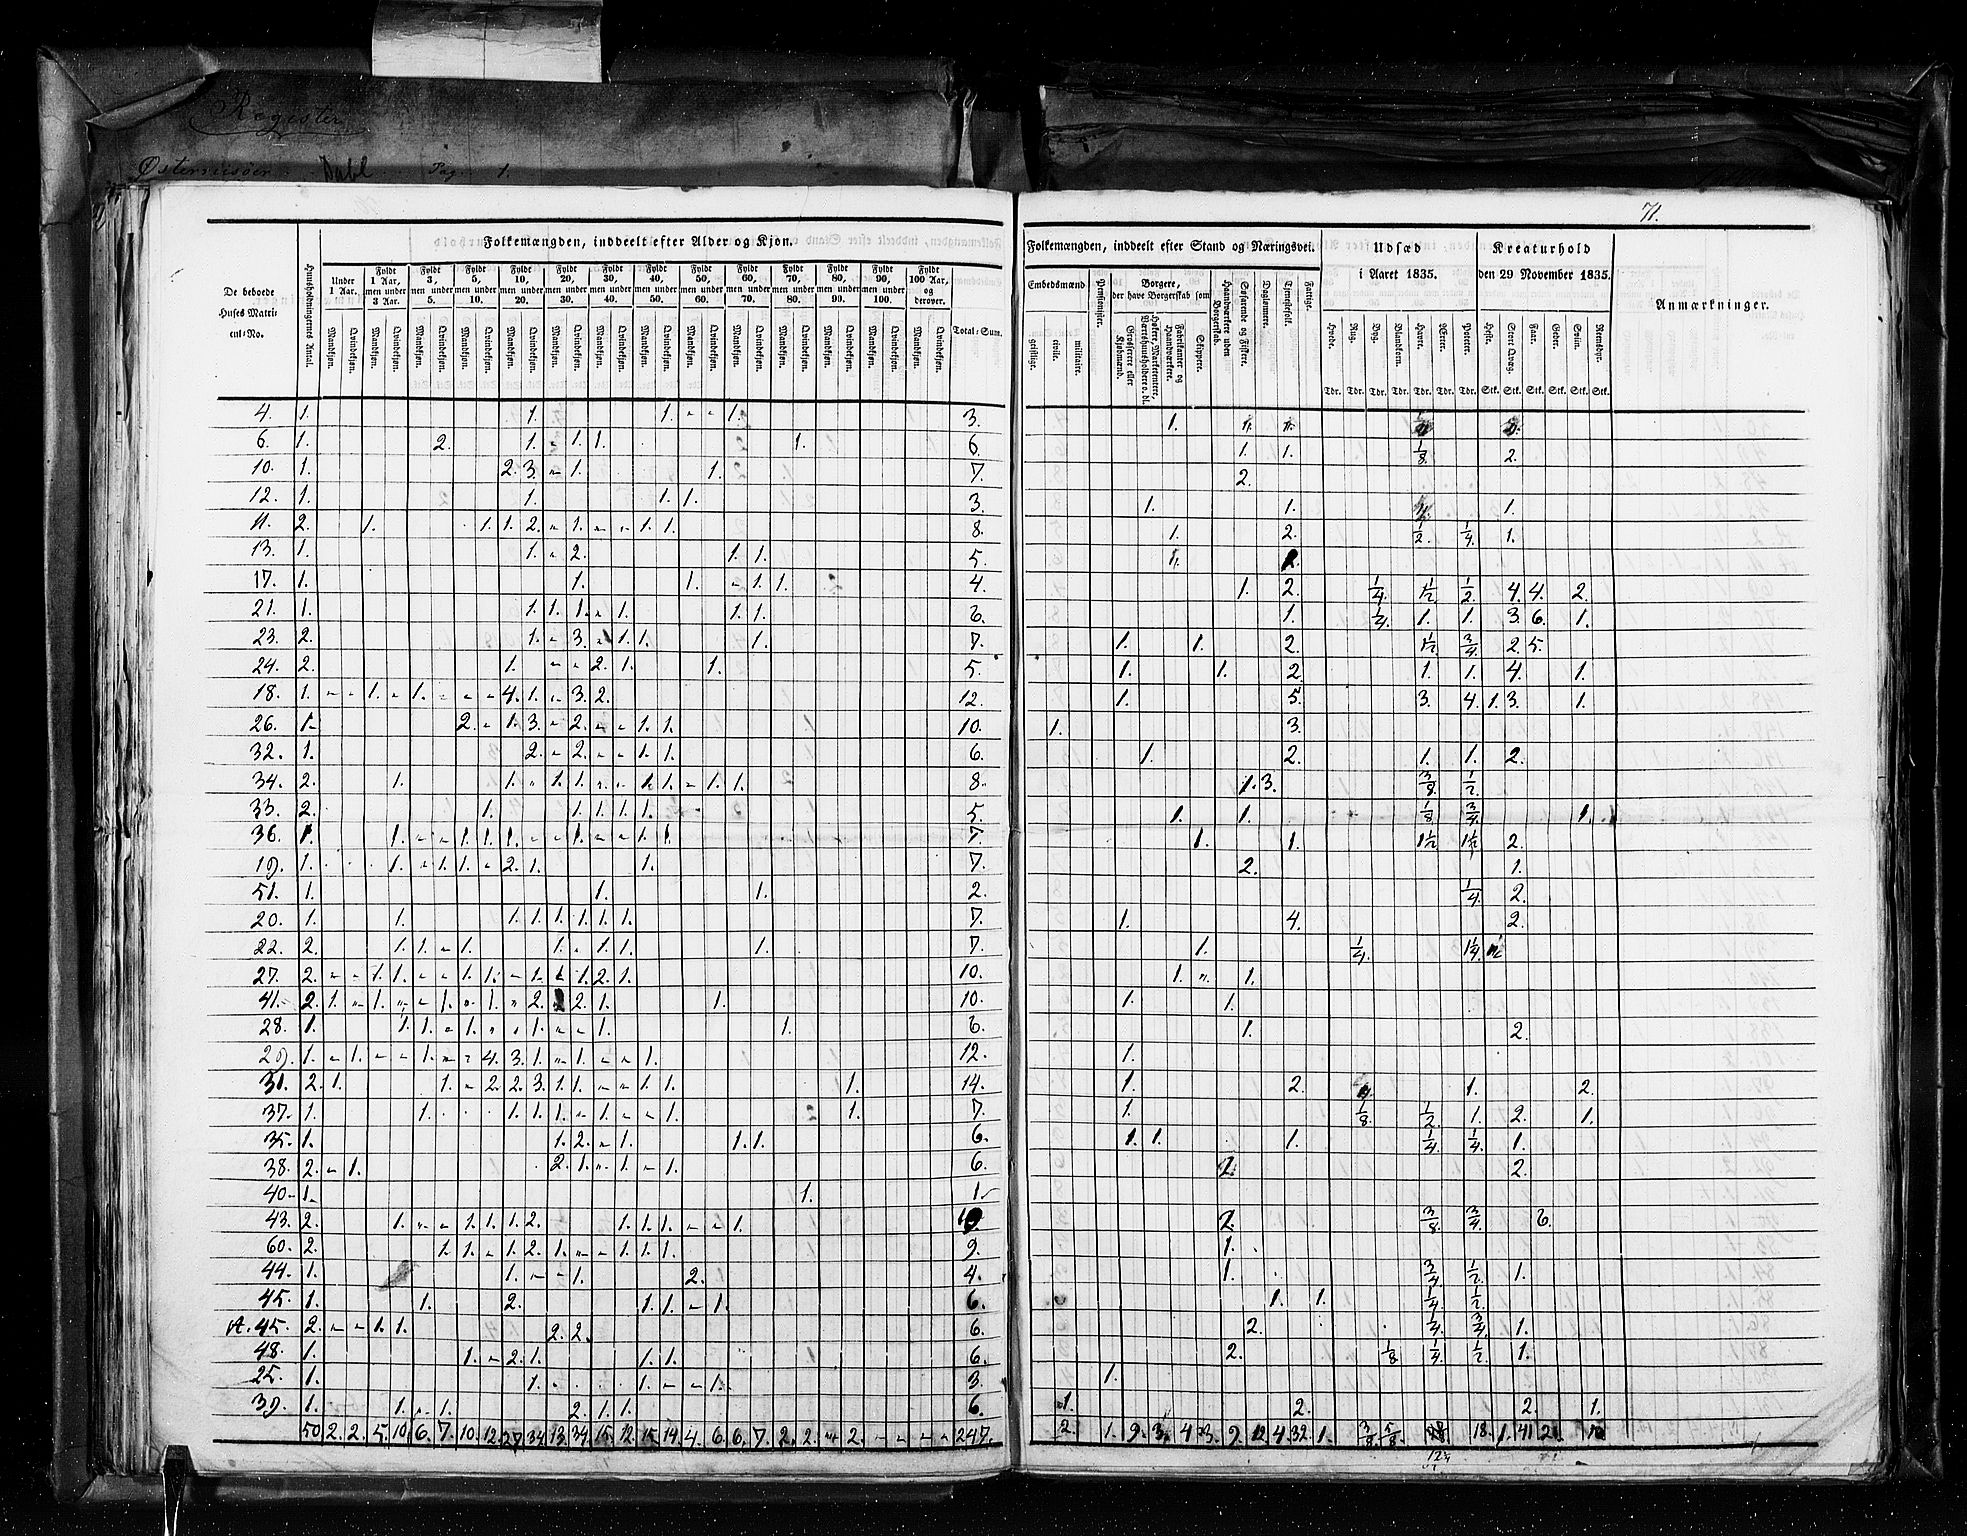 Register
Østerriisøer Dahl Pag. 1.
71.
Folkemængden, inddeelt efter Alder og Kjøn.
De beboede Huses Matricul-No.
Huusholdningernes Antal.
Under 1 Aar.
Fyldt 1 Aar, men under 3 Aar.
Fyldt 3, men under 5.
Fyldt 5, men under 10.
Fyldt 10, men under 20.
Fyldt 20, men under 30.
Fyldt 30, men under 40.
Fyldt 40, men under 50.
Fyldt 50, men under 60.
Fyldt 60, men under 70.
Fyldt 70, men under 80.
Fyldt 80, men under 90.
Fyldt 90, men under 100.
Fyldt 100 Aar, og derover.
Total-Sum.
Mandkjøn. Qvindekjøn. Mandkjøn. Qvindekjøn. Mandkjøn. Qvindekjøn. Mandkjøn. Qvindekjøn. Mandkjøn. Qvindekjøn. Mandkjøn. Qvindekjøn. Mandkjøn. Qvindekjøn. Mandkjøn. Qvindekjøn. Mandkjøn. Qvindekjøn. Mandkjøn. Qvindekjøn. Mandkjøn. Qvindekjøn. Mandkjøn. Qvindekjøn. Mandkjøn. Qvindekjøn. Mandkjøn. Qvindekjøn.
4. 1. 1. 1. - - 1. 3.
6. 1. 2. 1. - 1. 1. 1. 6.
10. 1. 2. 3. - 1. 1. 7.
12. 1. 1. 1. 1. 3.
11. 2. 1. 1. 1. 2. - 1. - - 1. 1. 8.
13. 1. 1. - 2. 1. 1. 5.
17. 1. 1. 1. - 1. 1. 4.
21. 1. 1. 1. 1. - 1. 1. 1. 6.
23. 2. 1. - 3. - 1. 1. 1. 7.
24. 2. 1. - - 2. 1. 1. 5.
18. 1. - - 1. - 1. - - - 4. 1. - 3. 2. 12.
26. 1. 2. - 1. 3. - 2. - - 1. 1. 10.
32. 1. 2. - 2. - - 1. 1. 6.
34. 2. 1. 1. - 1. 1. - - 1. 1. - 1. 1. 8.
33. 2. 1. 1. 1. 1. 1. 5.
36. 1. 1. - - 1. 1. 1. - - 1. - - 1. 1. 7.
19. 1. 1. - 1. 1. - 2. 1. 1. 7.
51. 1. 1. 1. 2.
20. 1. 1. 1. 1. 1. 1. 1. 1. 7.
22. 2. 1. 1. - 1. 1. - 1. 1. 1. 7.
27. 2. - - 1. 1. - - 1. 1. - 1. - 1. 2. 1. 10.
41. 2. 1. - 1. - - 1. - 1. - 2. 2. 1. 1. 10.
28. 1. 1. 1. - 1. - - 1. - - 1. 1. 6.
29. 1. - 1. - - 1. - - 4. 3. 1. - 1. - - 1. 12.
31. 2. 1. 1. - 2. 2. 3. 1. 1. - - 1. 1. 1. 14.
37. 1. 1. 1. 1. 1. - 1. - - 1. 1. 7.
35. 1. 1. 2. - 1. 1. 1. 6.
38. 2. - 1. 2. 1. - 1. - 1. 6.
40. 1. 1. 1.
43. 2. 1. - - 1. 1. 1. 2. 1. 1. 1. - - 1.
60. 2. 1. 1. - 1. 2. 1. - - 1. 1. 1. 9.
44. 1. 1. - - 1. 2. 4.
45. 1. 1. 2. 1. 1. - 1. 6.
A. 45. 2. - - 1. 1. 2. 2. 6.
48. 1. 1. - 2. 1. 1. 1. 6.
25. 1. 1. 1. - - 1. 3.
39. 1. 1. - 1. 2. 1. 1. 6.
50 2. 2. 5. 10. 6. 7. 10. 12. 27. 34. 13. 34. 15. 12. 15. 14. 4. 6. 6. 7. 2. 2. - 2. - - - - 247.
Folkemængden, inddeelt efter Stand og Næringsvei.
Embedsmænd
geistlige. civile. militaire.
Pensionister.
Borgere, der have Borgerskab som
Grosserere eller Kjøbmænd.
Høkere, Marketentere, Værtshuusholdere o. dl.
Fabrikanter og Haandværkere.
Skippere.
Haandværkere uden Borgerskab.
Søfarende og Fiskere.
Daglønnere.
Tjenestefolk.
Fattige.
Udsæd i Aaret 1835.
Hvede. Rug. Byg. Blandkorn. Havre. Ærter. Poteter.
Tdr. Tdr. Tdr. Tdr. Tdr. Tdr. Tdr.
Kreaturhold den 29 November 1835.
Heste. Stort Qvæg. Faar. Geder. Sviin. Rensdyr.
Stk. Stk. Stk. Stk. Stk. Stk.
Anmærkninger.
1.
1. 1. 1/8. 2.
2.
1. 1. 1.
1. 2. 1/2. 1/4. 1.
1. 2. 1/4. 1/2. 1/2. 4. 4. 2.
1. 1/4. 1. 1. 3. 6. 1.
1. 1. 2. 1 1/2. 3/4. 2. 5.
1. 1. 2. 1. 1. 4. 1.
1. 5. 3. 4. 1. 3. 1.
1. 3.
1. 2. 1. 1. 2.
1. 3. 3/8. 1/2.
1. 1. 1/8. 3/4. 1.
1. 1. 1 1/2. 1 1/2. 2.
2. 1.
1/4. 2.
1. 4. 2.
1. 1/4. 1 1/4.
1. - 1.
1. 1.
1. 2.
1.
1. 2. 1. 2.
1. 1/8. 1/2. 1. 2. 1.
1. 1. 1. 1/4. 1/4. 1.
2. 2.
2. 3/8. 3/4. 6.
1.
1. 3/4. 1/2. 1.
1. 1. 1/4. 1/2.
2. 1/4. 3/4. 1.
2. 1/8 1/4. 1/2. 1.
1.
1. 2. 2. 1.
2. 1. 9. 3. 4. 3. 9. 12. 4. 32. 1. 3/8. 5/8. 18. 1. 41. 21.